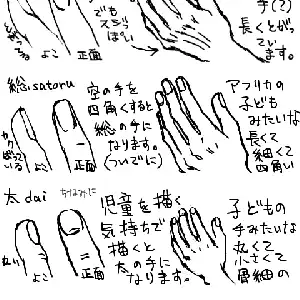 でも
スラリ
っぽい
手(?)
長くとがっ
てい
ます。
よこ
正面
総 satoru
空の手を
四角くすると
総の手に
なります。
(ついでに)
アフリカの
子ども
みたいな
長くて
細くて
四角い
よこ
正面
太 dai
ちなみに
児童を描く
気持ちで
描くと
太の手に
なります。
子どもの
手みたいな
丸くて
小さくて
骨細の
丸い
よこ
正面